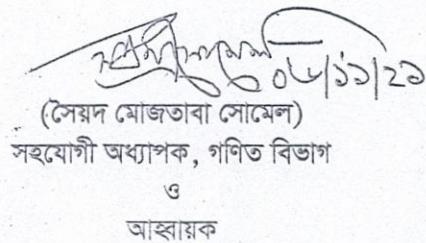 ০৮/১১/২১
(সৈয়দ মোজতাবা সোমেল)
সহযোগী অধ্যাপক, গণিত বিভাগ
ও
আহ্বায়ক